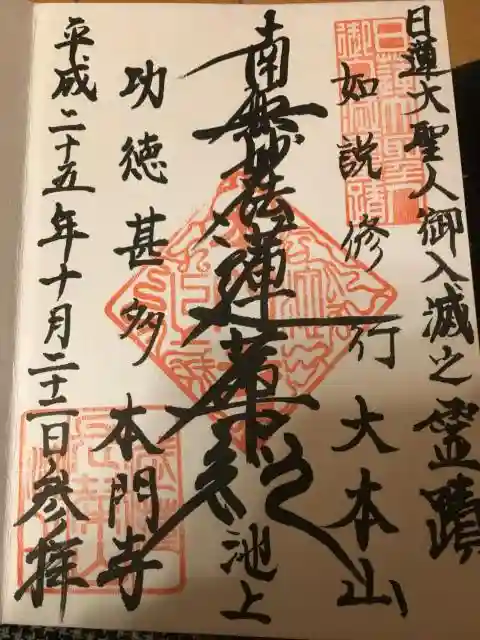 日蓮大聖人御入滅之霊蹟
如説修行大本山
南無妙法蓮華経
池上
功徳甚多本門寺
平成二十五年十月二十二日参拝